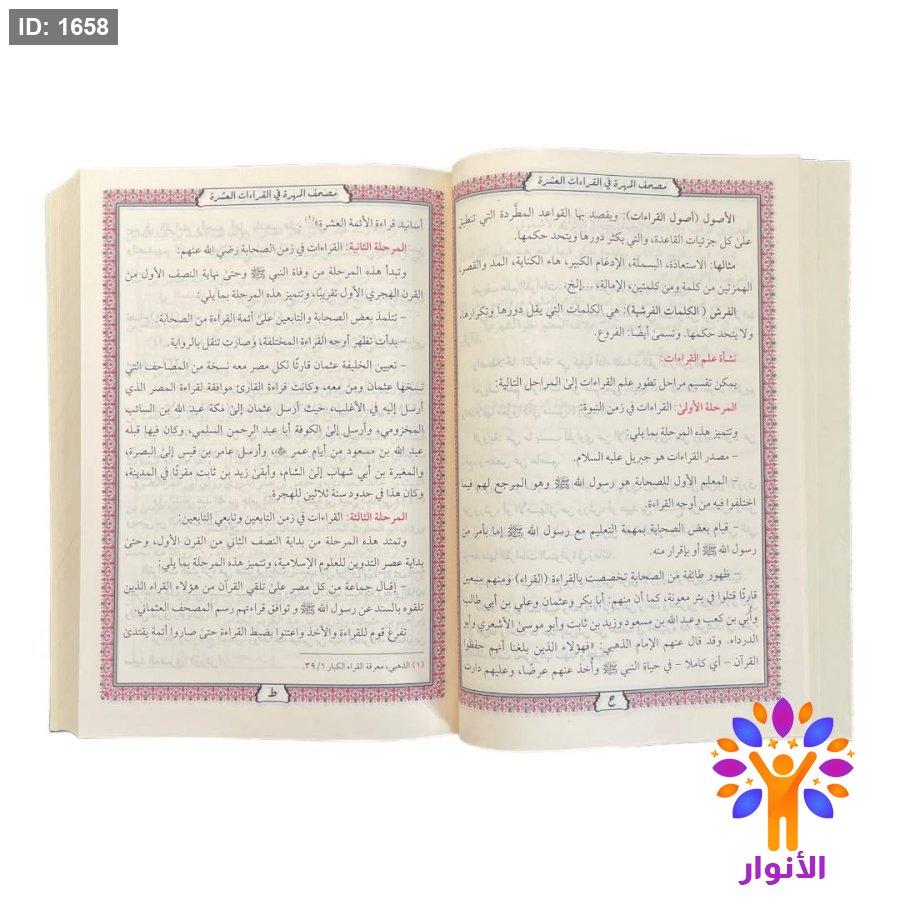 ID: 1658
مصحف المهرة في القراءات العشرة
الأصول (أصول القراءات): ويقصد بها القواعد المطَّردة التي تنطبق
علىٰ كل جزئيات القاعدة، والتي يكثر دورها ويتحد حكمها.
مثالها: الاستعاذة، البسملة، الإدغام الكبير، هاء الكناية، المد والقصر،
الهمزتين من كلمة ومن كلمتين، الإمالة، ....إلخ.
الفرش ( الكلمات الفرشية): هي الكلمات التي يقل دورها وتكرارها،
ولا يتحد حكمها. وتسمىٰ أيضًا: الفروع.
نشأة علم القراءات:
يمكن تقسيم مراحل تطور علم القراءات إلىٰ المراحل التالية:
المرحلة الأولىٰ: القراءات في زمن النبوة:
وتتميز هذه المرحلة بما يلي:
– مصدر القراءات هو جبريل عليه السلام.
– المعلم الأول للصحابة هو رسول الله ﷺ وهو المرجع لهم فيما
اختلفوا فيه من أوجه القراءة.
– قيام بعض الصحابة بمهمة التعليم مع رسول الله ﷺ إما بأمر من
رسول الله ﷺ أو بإقرار منه.
– ظهور طائفة من الصحابة تخصصت بالقراءة (القراء) ومنهم سبعين
قارئًا قتلوا في بئر معونة، كما أن منهم: أبا بكر وعثمان وعلي بن أبي طالب
وأُبي بن كعب وعبد الله بن مسعود وزيد بن ثابت وأبو موسىٰ الأشعري وأبو
الدرداء. وقد قال عنهم الإمام الذهبي: «فهؤلاء الذين بلغنا أنهم حفظوا
القرآن – أي كاملا – في حياة النبي ﷺ وأُخذ عنهم عرضًا، وعليهم دارت
ح
مصحف المهرة في القراءات العشرة
أسانيد قراءة الأئمة العشرة»(١)
المرحلة الثانية: القراءات في زمن الصحابة رضي الله عنهم:
وتبدأ هذه المرحلة من وفاة النبي ﷺ وحتىٰ نهاية النصف الأول من
القرن الهجري الأول تقريبًا، وتتميز هذه المرحلة بما يلي:
– تتلمذ بعض الصحابة والتابعين علىٰ أئمة القراءة من الصحابة.
– بدأت تظهر أوجه القراءة المختلفة، وصارت تنقل بالرواية.
– تعيين الخليفة عثمان قارئًا لكل مصر معه نسخة من المصاحف التي
نسخها عثمان ومن معه، وكانت قراءة القارئ موافقة لقراءة المصر الذي
أرسل إليه في الأغلب، حيث أرسل عثمان إلىٰ مكة عبد الله بن السائب
المخزومي، وأرسل إلىٰ الكوفة أبا عبد الرحمن السلمي، وكان فيها قبله
عبد الله بن مسعود من أيام عمر ﷺ، وأرسل عامر بن قيس إلىٰ البصرة،
والمغيرة بن أبي شهاب إلىٰ الشام، وأبقىٰ زيد بن ثابت مقرئًا في المدينة،
وكان هذا في حدود سنة ثلاثين للهجرة.
المرحلة الثالثة: القراءات في زمن التابعين وتابعي التابعين:
وتمتد هذه المرحلة من بداية النصف الثاني من القرن الأول، وحتىٰ
بداية عصر التدوين للعلوم الإسلامية، وتتميز هذه المرحلة بما يلي:
– إقبال جماعة من كل مصر علىٰ تلقي القرآن من هؤلاء القراء الذين
تلقوه بالسند عن رسول الله ﷺ و توافق قراءتهم رسم المصحف العثماني.
تفرغ قوم للقراءة والأخذ واعتنوا بضبط القراءة حتىٰ صاروا أئمة يقتدىٰ
(١) الذهبي، معرفة القراء الكبار ٣٩/١.
ط
الأنوار